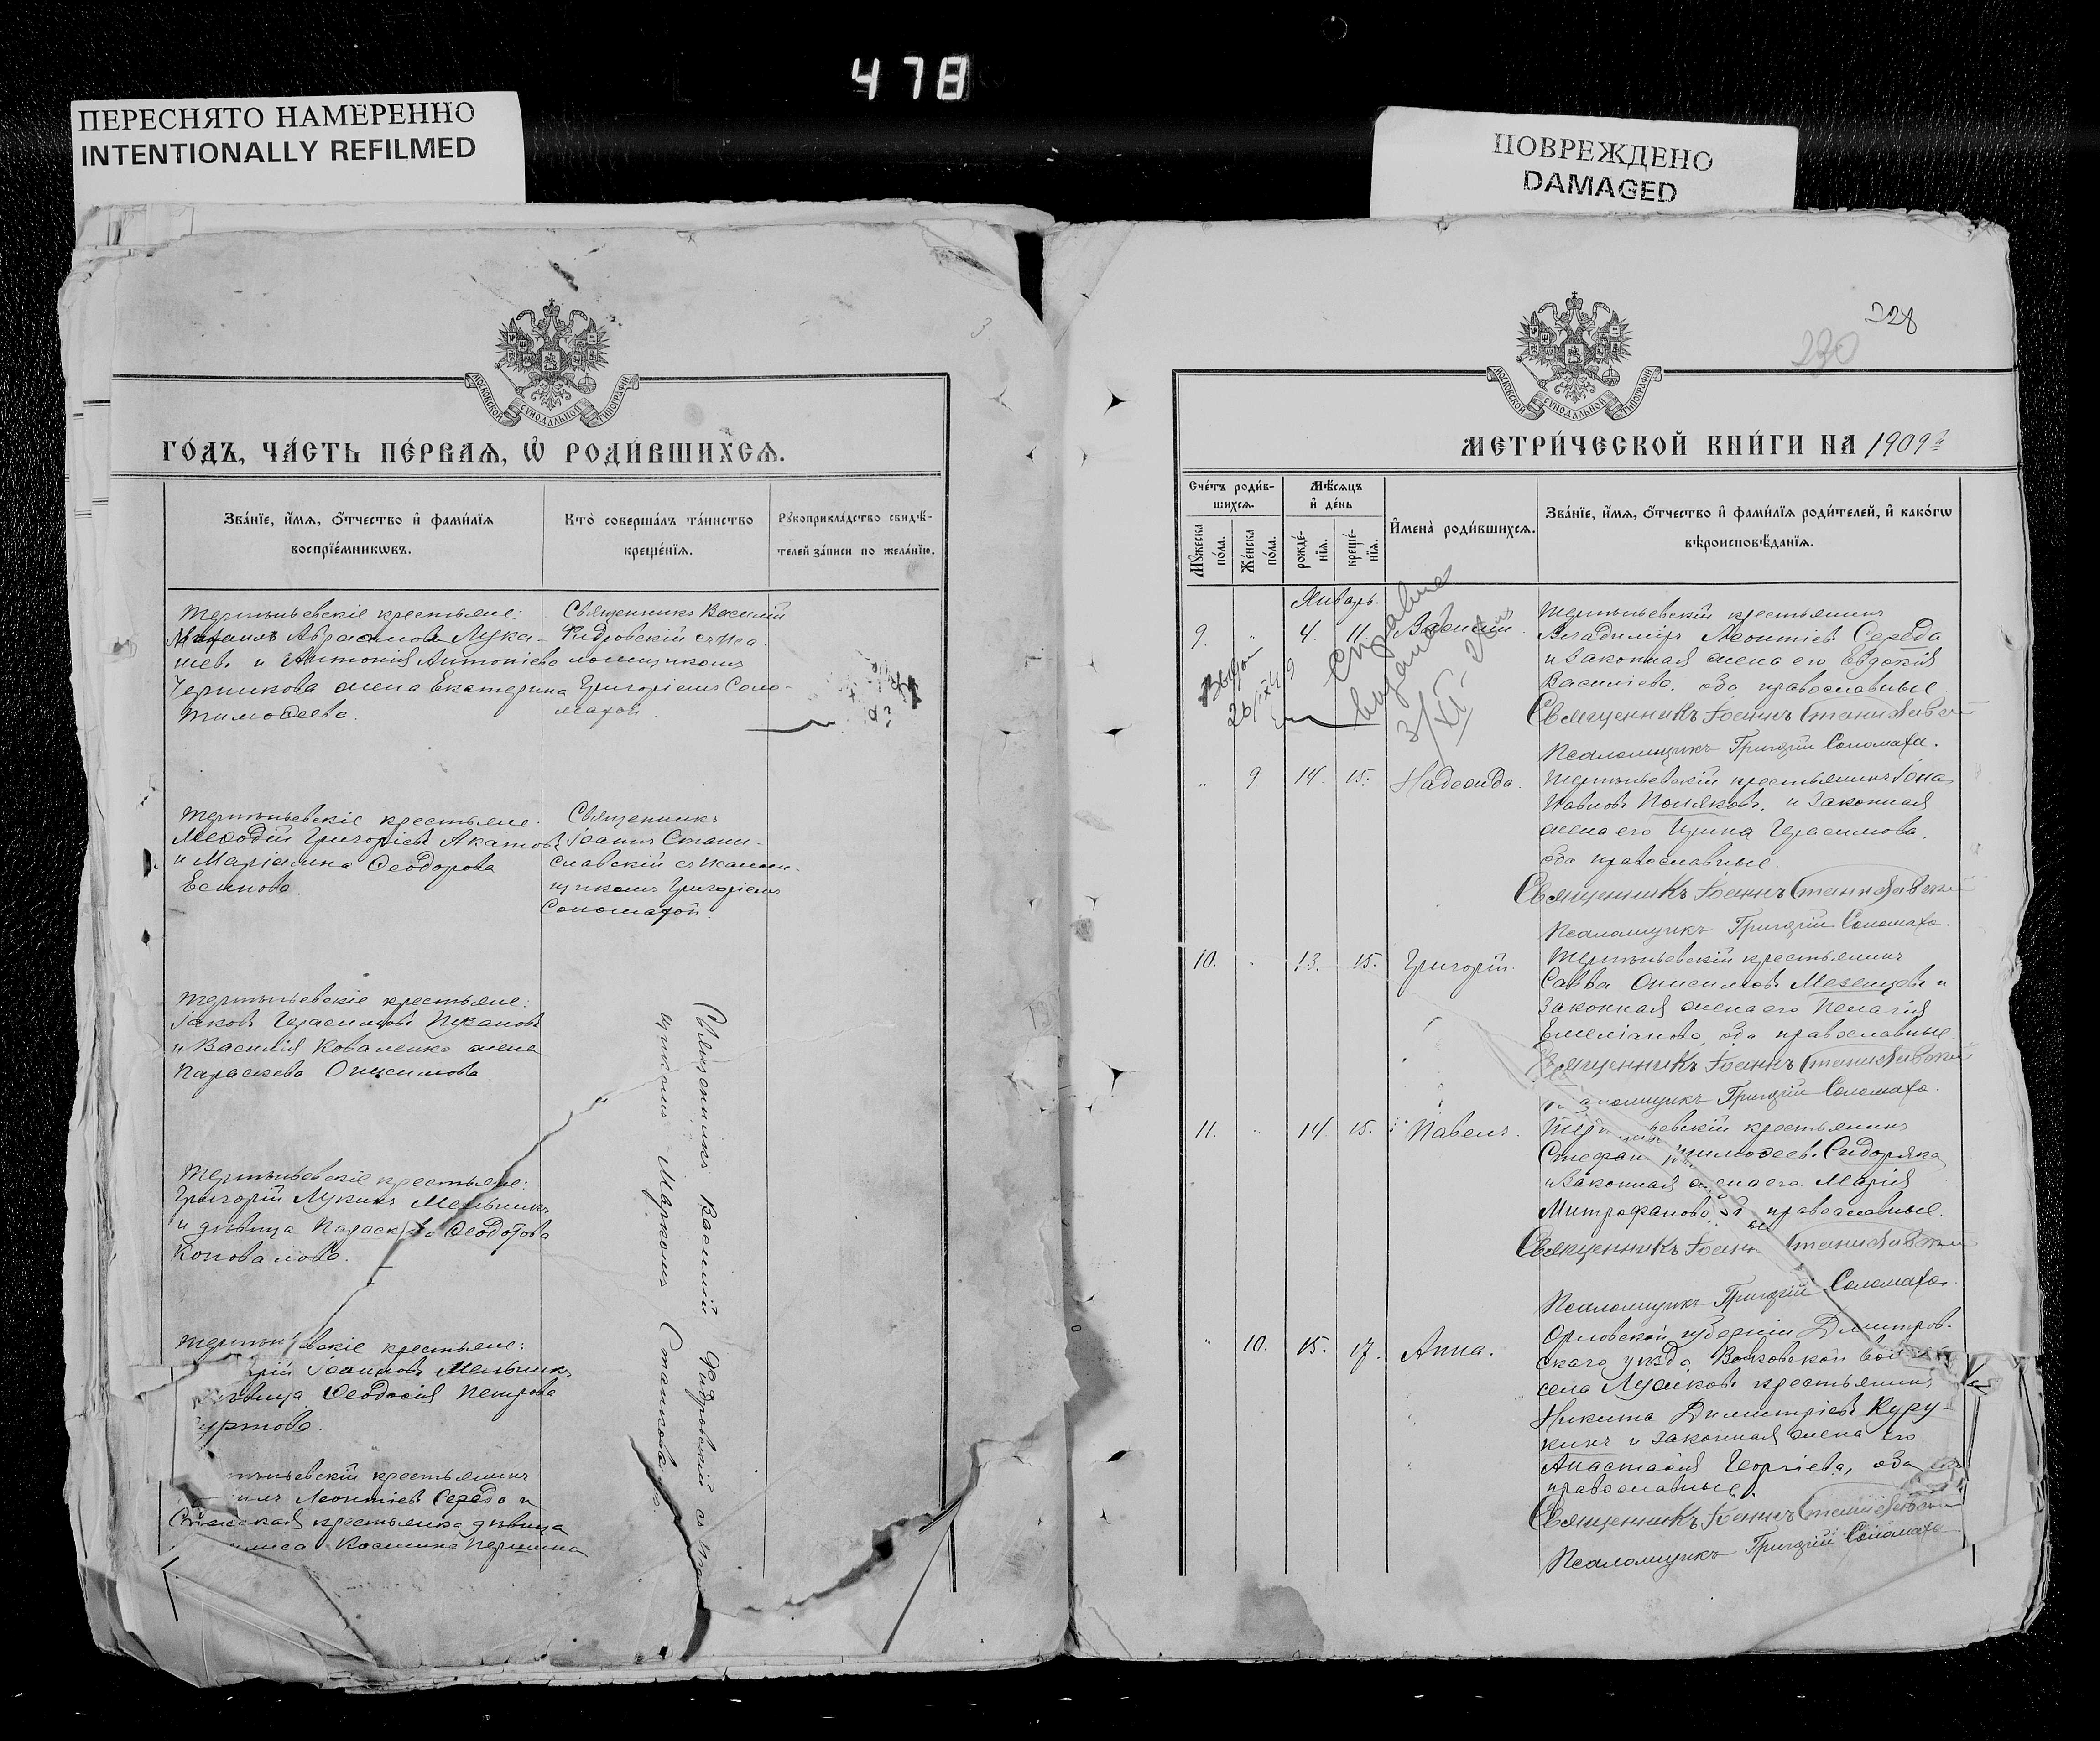 478
ПЕРЕСНЯТО НАМЕРЕННО
INTENTIONALLY REFILMED
ПОВРЕЖДЕНО
DAMAGED
МОСКОВСКОЙ СУНОДАЛЬНОЙ ТИПОГРАФІИ
ГО́ДЪ, ЧА́СТЬ ПЕ́РВАѦ, Ѡ҆ РОДИ́ВШИХСѦ.
Зва́нїе, и҆́мѧ, ѻ҆́тчество и҆ фами́лїѧ
воспрїе́мникѡвъ.
Кто̀ соверша́лъ та́инство
креще́нїѧ.
Рꙋкоприкла́дство свидѣ́-
телей за́писи по жела́нїю.
крестьяне:
Аврамовъ Лука-
шев. и Антонія Антоніева
Черникова жена Екатерина
Тимоѳеева.
Священникъ Василій
Фидровскій съ Пса-
ломщикомъ
Григоріемъ Соло-
махой.
крестьяне
Меѳодій Григорьевъ Акатовъ
и Маріанна Ѳеодорова
Есипова.
Священникъ
Іоаннъ Стани-
славскій съ Псалом-
щикомъ Григоріемъ
Соломахой.
крестьяне:
Іаковъ Герасимовъ
и Василія Коваленко жена
Параскева Онисимова.
крестьяне:
Григорій Лукинъ Мельникъ
и дѣвица Параскева Ѳеодорова
Коновалова.
крестьяне:
Іоанновъ Мельникъ
Ѳеодосія Петрова
крестьянинъ
Леонтіевъ Середа и
крестьянка дѣвица
Космина
Священникъ Василій Фидровскій съ
щикомъ Маркомъ Станковымъ.
228
230
МОСКОВСКОЙ СУНОДАЛЬНОЙ ТИПОГРАФІИ
МЕТРИ́ЧЕСКОЙ КНИ́ГИ НА 1909 г.
Сче́тъ роди́в-
шихсѧ.
Мꙋжеска по́ла.
Же́нска по́ла.
Мѣ́сѧцъ
и҆ де́нь
рожде́-
нїѧ.
креще́-
нїѧ.
И҆мена̀ роди́вшихсѧ.
Зва́нїе, и҆́мѧ, ѻ҆́тчество и҆ фами́лїѧ роди́телей, и҆ како́гѡ
вѣроисповѣ́данїѧ.
Январь.
9. " 4. 11. Василій.
справка
выдана
крестьянинъ
Владиміръ Леонтіевъ Середа
и законная жена его Евдокія
Васильева, оба православные
Священникъ Іоаннъ Станиславскій
Псаломщикъ Григорій Соломаха.
" 9. 14. 15. Надежда.
крестьянинъ Іона
Павловъ Поляковъ, и законная
жена его Ирина Герасимова,
оба православные.
Священникъ Іоаннъ Станиславскій
Псаломщикъ Григорій Соломаха.
10. " 13. 15. Григорій.
крестьянинъ
Савва Онисимовъ Мезенцевъ и
законная жена его Пелагія
Емеліанова, оба православные.
Священникъ Іоаннъ Станиславскій
Псаломщикъ Григорій Соломаха.
11. " 14. 15. Павелъ.
крестьянинъ
Стефанъ Тимоѳеевъ Сидоряка
и законная жена его Марія
Митрофанова, оба православные.
Священникъ Іоаннъ Станиславскій
Псаломщикъ Григорій Соломаха.
" 10. 15. 17. Анна.
Орловской губерніи Дмитров-
скаго уѣзда, Волковской вол
села крестьянинъ
Никита Димитріевъ Куру-
кинъ и законная жена его
Анастасія Георгіева, оба
православные.
Священникъ Іоаннъ Станиславскій
Псаломщикъ Григорій Соломаха